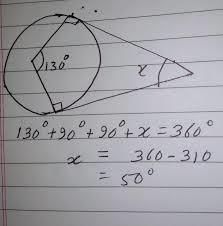 130°
x
130° + 90° + 90° + x = 360°
x = 360 - 310
= 50°